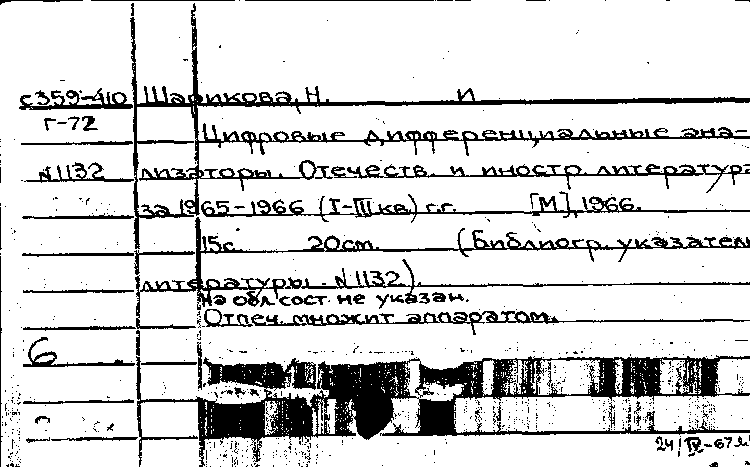 с359-410 Шарикова, Н. И
Г-72 Цифровые дифференциальные ана-
№1132 лизаторы. Отечеств. и иностр. литература
за 1965-1966 (I-III кв.) г.г. [М], 1966.
15с. 20см. (Библиогр. указатель
литературы. №1132).
На обл. сост. не указан.
Отпеч. множит аппаратом.
6
24/IV-67